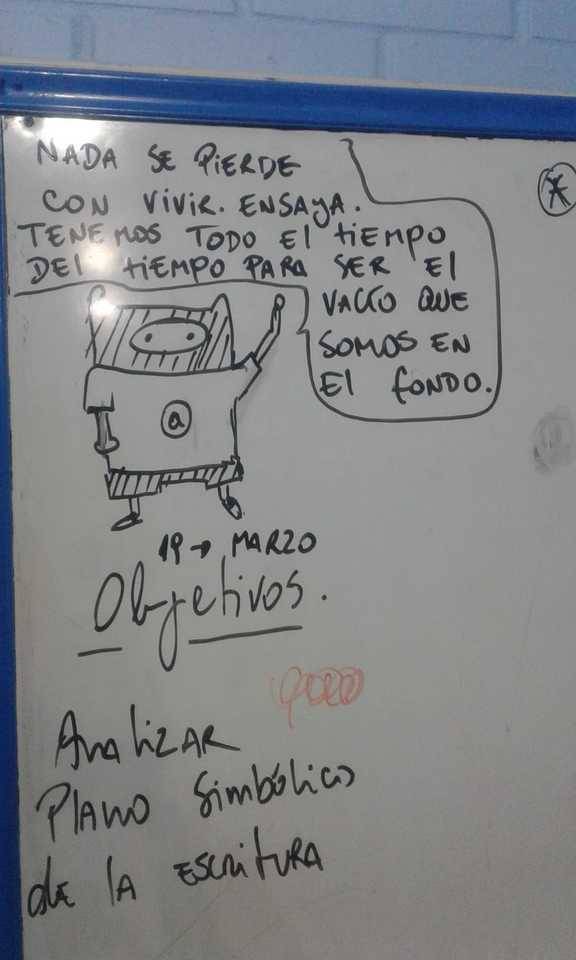 NADA SE PIERDE
CON VIVIR. ENSAYA.
TENEMOS TODO El tiEMPO
DEl tiEMPO PARA SER El
VACÍO QUE
SOMOS EN
El fONDO.
a
19 → MARZO
Objetivos.
AnalizAR
Plano Simbólico
de lA ESCRITURA